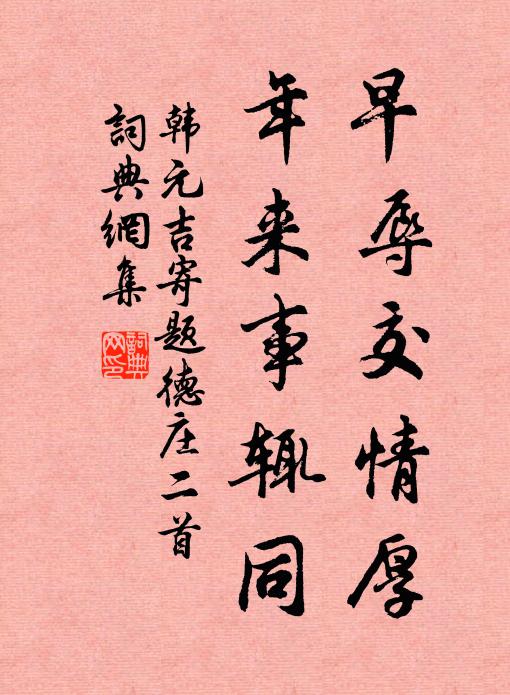 早辱交情厚
年来事辄同
韩元吉寄题德庄二首
詞典網集
詞典
网印